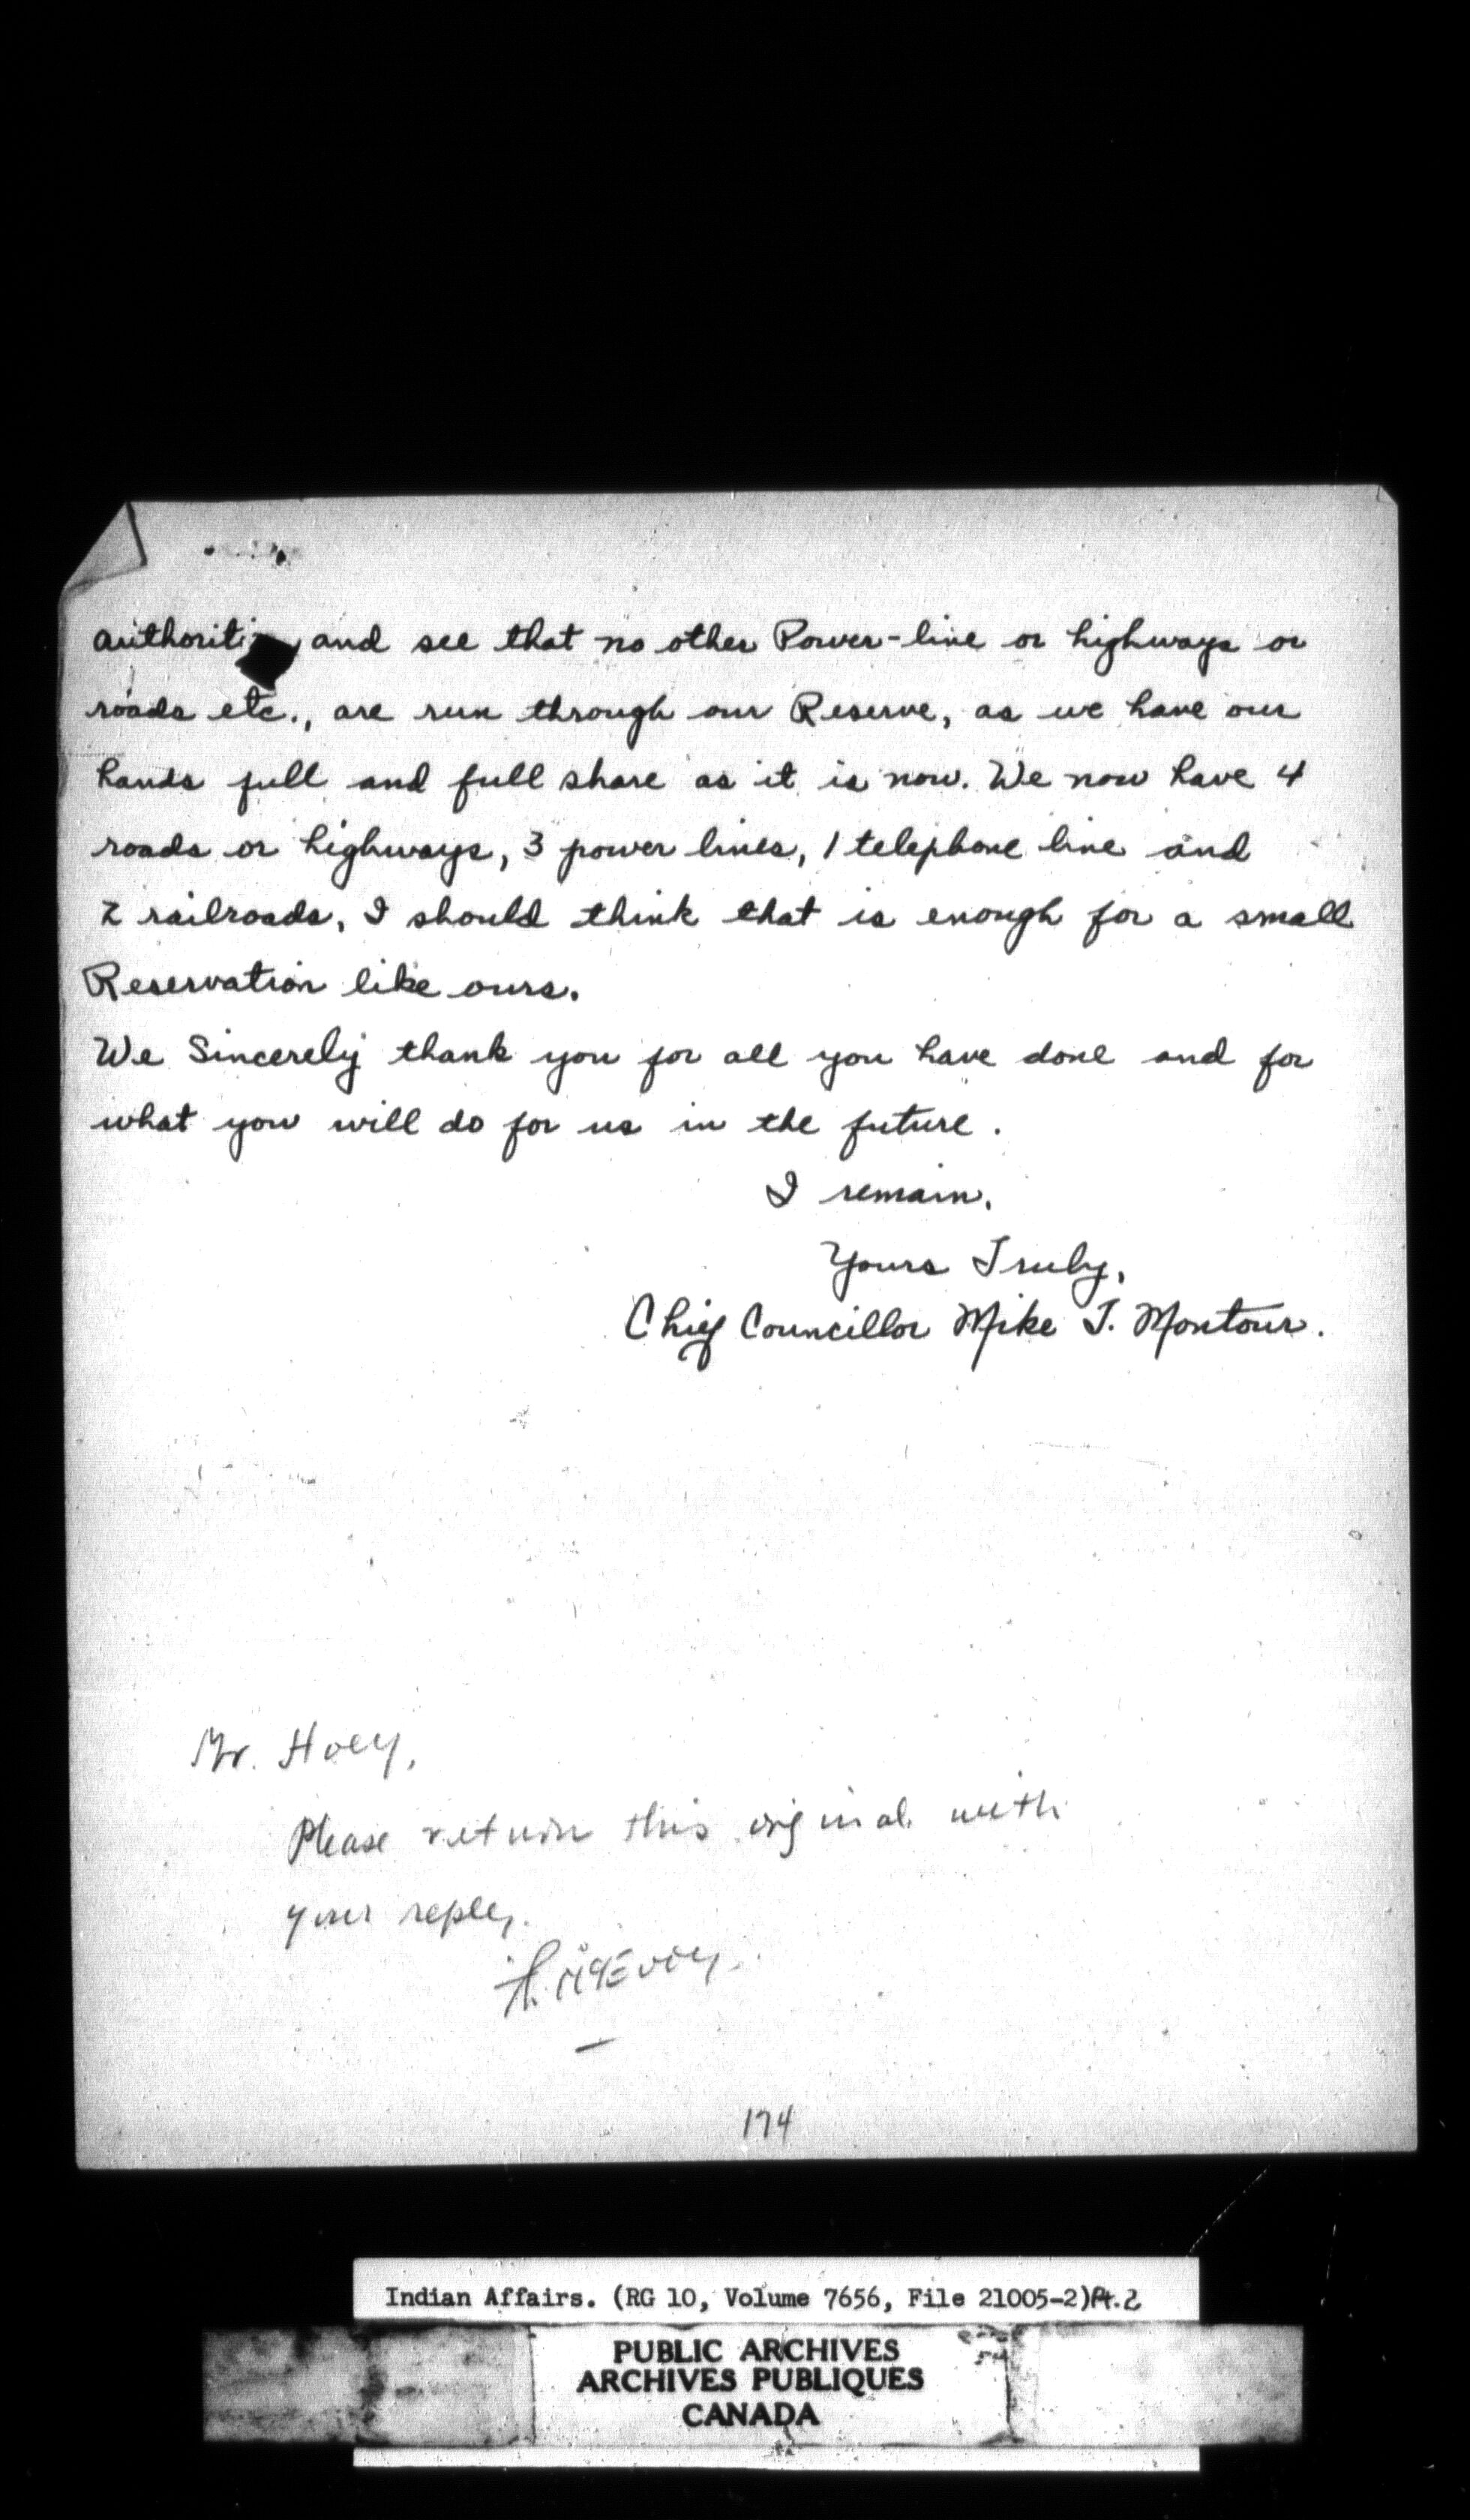 authoriti and see that no other Power-line or highways or
roads etc., are run through our Reserve, as we have our
hands full and full share as it is now. We now have 4
roads or highways, 3 power lines, 1 telephone line and
2 railroads, I should think that is enough for a small
Reservation like ours.
We Sincerely thank you for all you have done and for
what you will do for us in the future.
I remain,
Yours Truly,
Chief Councillor Mike T. Montour.
Mr. Hoey,
Please return this original with
your reply.
McEvoy.
174
Indian Affairs. (RG 10, Volume 7656, File 21005-2)Pt.2
PUBLIC ARCHIVES
ARCHIVES PUBLIQUES
CANADA